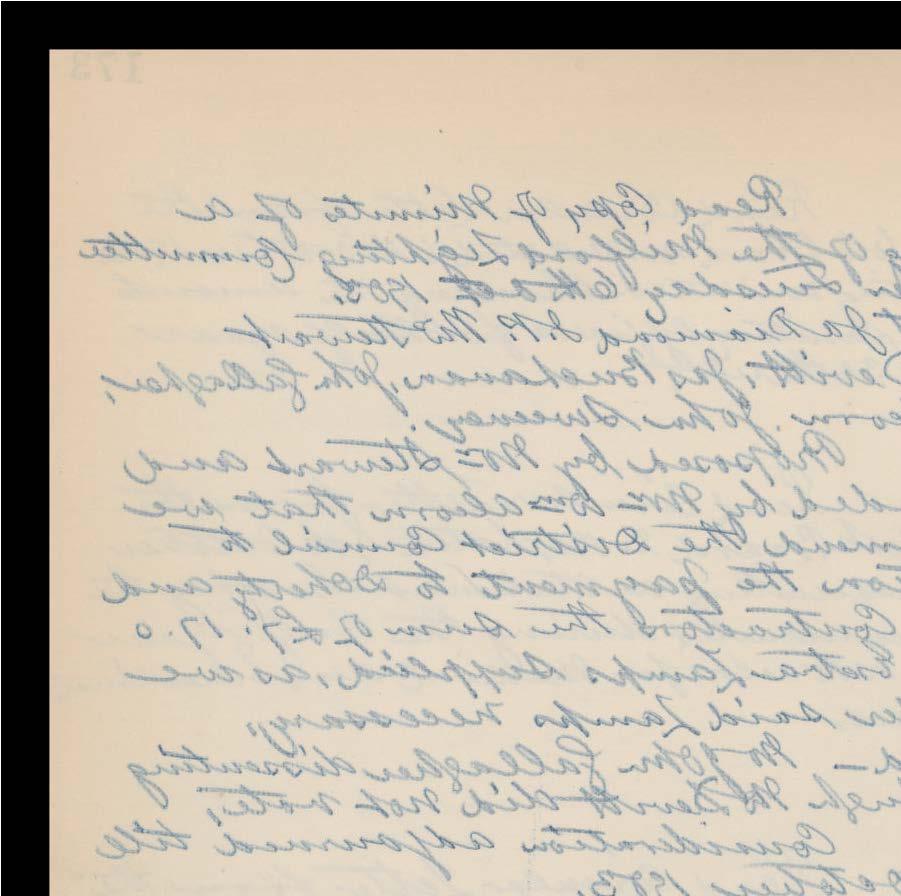 173
Read Copy of Minutes of a
of the Milford Lighting Committee
Tuesday 6th Oct 1903.
Jas Diamond J.P. Wm Stewart
Devitt, Jas Buchanan, John Gallagher,
John Sweeney
Proposed by Mr Stewart and
ded by Mr Wm alcorn that we
mend the District Council to
tion the payment to Doherty and
Contractors the sum of £7. 17. 0
Extra Lamps supplied, as we
er said Lamps necessary,
Mr John Gallagher dissenting
ugh McDevitt did not vote,
Consideration adjourned till
1903.